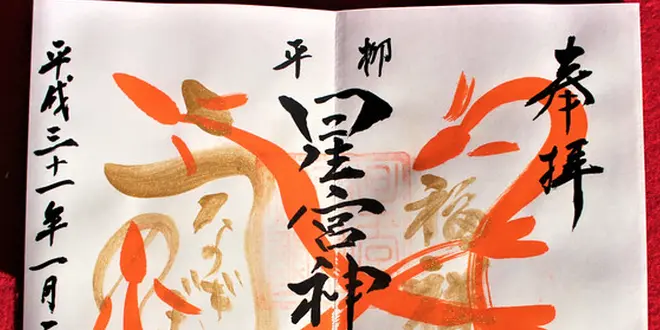 奉拝
平柳
星宮神
福
平成三十一年一月